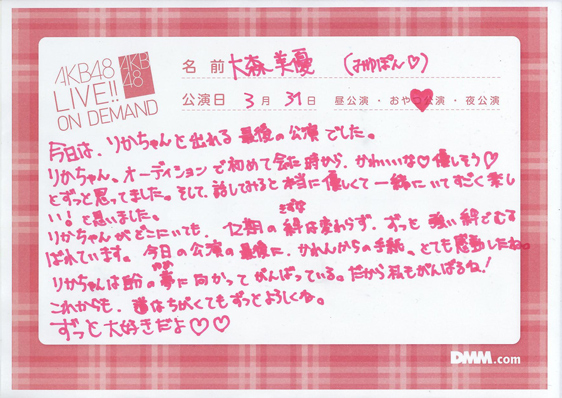 AKB48
LIVE!!
ON DEMAND
AKB
48
名前 大森美優 (みゆぽん♡)
公演日 3月31日 昼公演・おやつ公演・夜公演
今日は、りかちゃんと出れる最後の公演でした。
りかちゃん、オーディションで初めて会た時から、かわいいな♡優しそう♡
とずっと思ってました。そして、話してみると本当に優しくて一緒にいてすごく楽し
い!と思いました。
りかちゃんがどこにいても、12期の絆は変わらず、ずっと強い絆でむす
きずな
ばれています。今日の公演の最後に、かれんからの手紙、とても感動したね。
りかちゃんは の夢に向かってがんばっている。だから私もがんばるね!
ゆめ
これからも、道はちがくてもずっとよろしくね。
ずっと大好きだよ♡♡
DMM.com